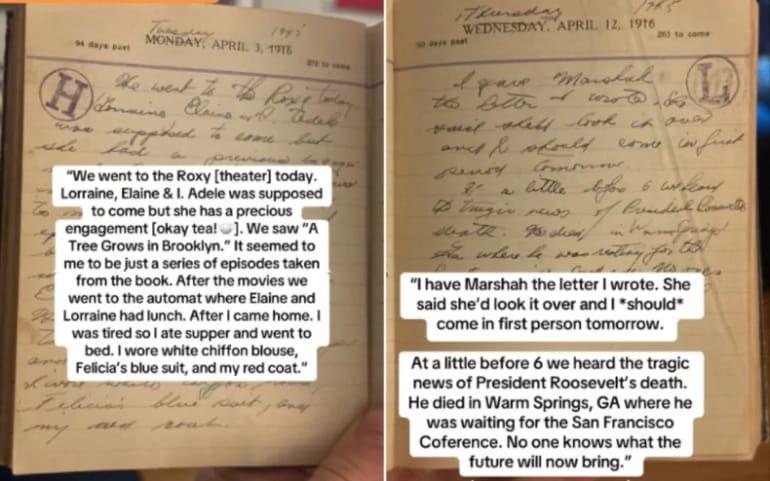 Tuesday 1945
MONDAY, APRIL 3, 1916
94 days past
272 to come
H
We went to the Roxy today.
Lorraine, Elaine & I. Adele
was supposed to come but
she had a previous
"We went to the Roxy [theater] today.
Lorraine, Elaine & I. Adele was supposed
to come but she has a precious
engagement [okay tea!🍵]. We saw "A
Tree Grows in Brooklyn." It seemed to
me to be just a series of episodes taken
from the book. After the movies we
went to the automat where Elaine and
Lorraine had lunch. After I came home. I
was tired so I ate supper and went to
bed. I wore white chiffon blouse,
Felicia's blue suit, and my red coat."
Felicia's blue suit, and
my red coat.
Thursday 1945
WEDNESDAY, APRIL 12, 1916
103 days past
263 to come
L
I gave Marshah
the letter I wrote. She
said she'd look it over
and I should come in first
period tomorrow.
At a little before 6 we heard
the tragic news of President Roosevelt's
death. He died in Warm Springs
Ga where he was waiting for the
"I have Marshah the letter I wrote. She
said she'd look it over and I *should*
come in first person tomorrow.
At a little before 6 we heard the tragic
news of President Roosevelt's death.
He died in Warm Springs, GA where he
was waiting for the San Francisco
Coference. No one knows what the
future will now bring."